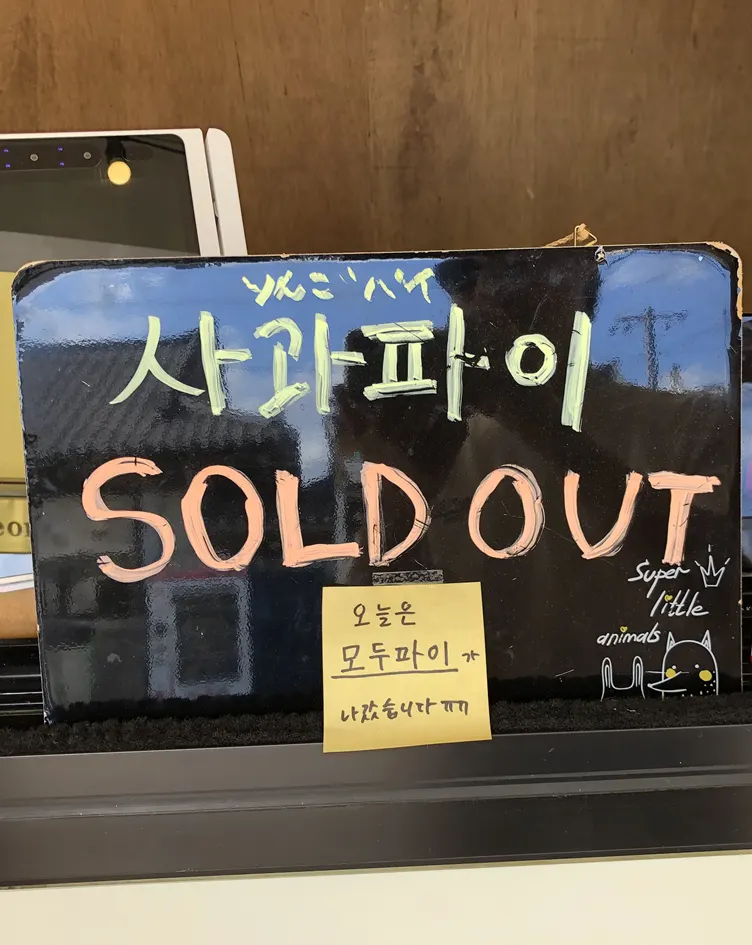 りんごパイ
사과파이
SOLD OUT
Super
little
animals
오늘은
모두파이가
나갔습니다 ㅠㅠ